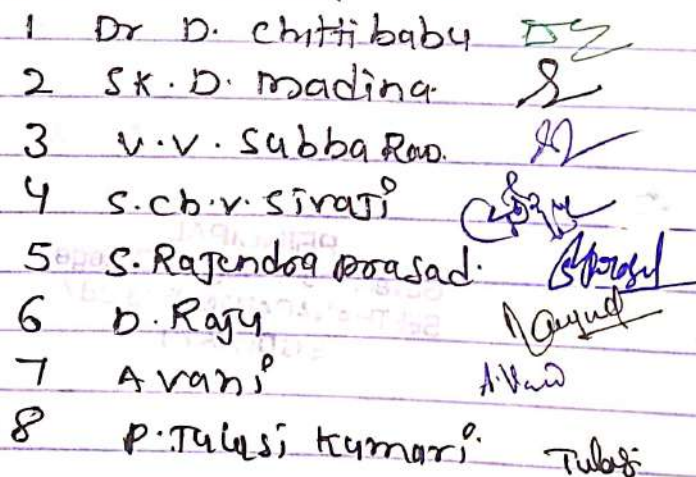 1 Dr D. Chittibabu
2 SK. D. Madina
3 V.V. Subba Rao.
4 S.Ch.V. Sivaji
5 S. Rajendra Prasad.
6 D. Raju
7 A vani
8 P. Tulasi Kumari. Tulasi